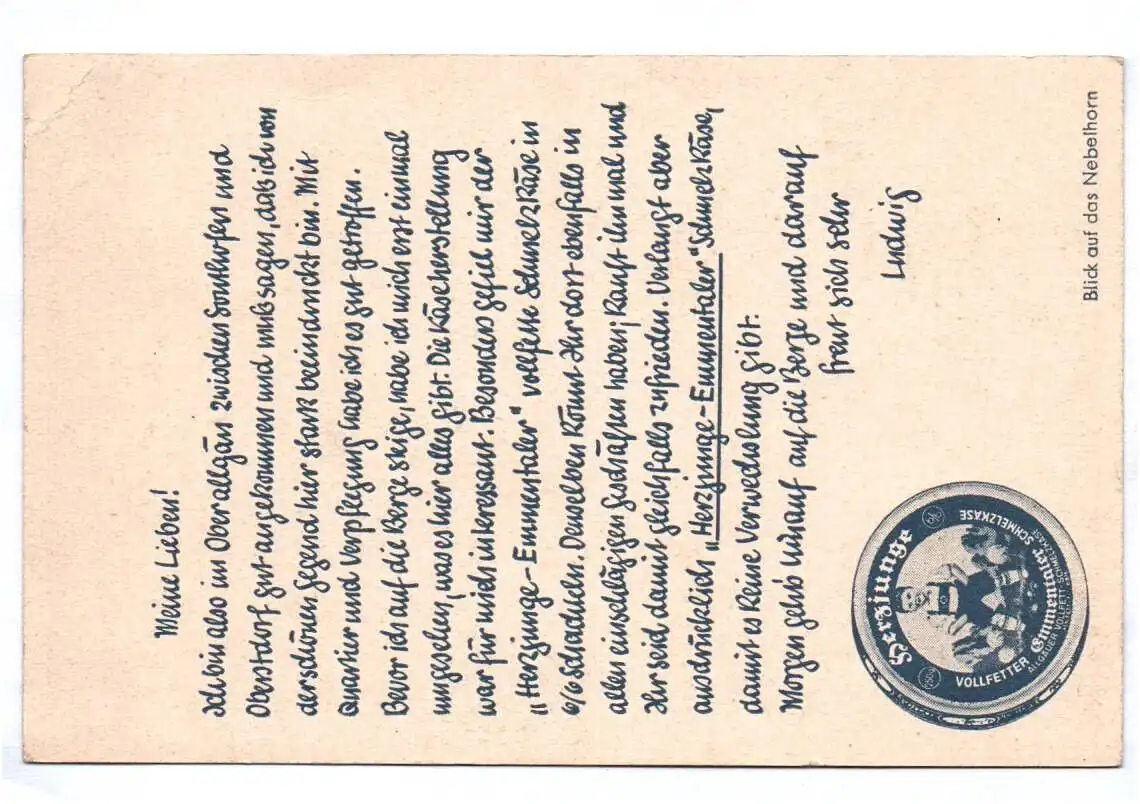 Meine Lieben!
Ich bin also im Oberallgäu zwischen Sonthofen und
Oberstdorf gut angekommen und muß sagen, daß ich von
der schönen Gegend hier stark beeindruckt bin. Mit
Quartier und Verpflegung habe ich es gut getroffen.
Bevor ich auf die Berge steige, habe ich mich erst einmal
umgesehen, was es hier alles gibt. Die Käseherstellung
war für mich interessant. Besonders gefiel mir der
„Herzjunge-Emmentaler" vollfette Schmelzkäse in
6/6 Schachteln. Denselben könnt Ihr dort ebenfalls in
allen einschlägigen Geschäften haben; kauft ihn mal und
Ihr seid damit gleichfalls zufrieden. Verlangt aber
ausdrücklich „Herzjunge-Emmentaler" Schmelzkäse,
damit es keine Verwechslung gibt.
Morgen geh's hinauf auf die Berge und darauf
freut sich sehr
Ludwig
Herzjunge
VOLLFETTER
Emmentaler SCHMELZKÄSE
ALLGÄUER VOLLFETT SCHMELZKÄSE
Blick auf das Nebelhorn